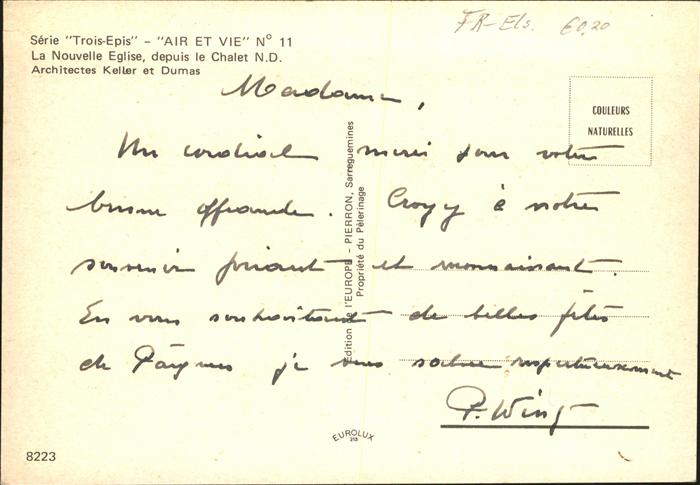 FR-Els. €0,20
Série "Trois-Epis" - "AIR ET VIE" N° 11
La Nouvelle Eglise, depuis le Chalet N.D.
Architectes Keller et Dumas
Madame,
COULEURS
NATURELLES
Un cordial merci pour votre
bonne offrande. Croyez à notre
souvenir priant et reconnaissant.
En vous souhaitant de belles fêtes
de Pâques je vous salue respectueusement
P. Wingt
Edition de l'EUROPE - PIERRON, Sarreguemines
Propriété du Pèlerinage
EUROLUX
213
8223